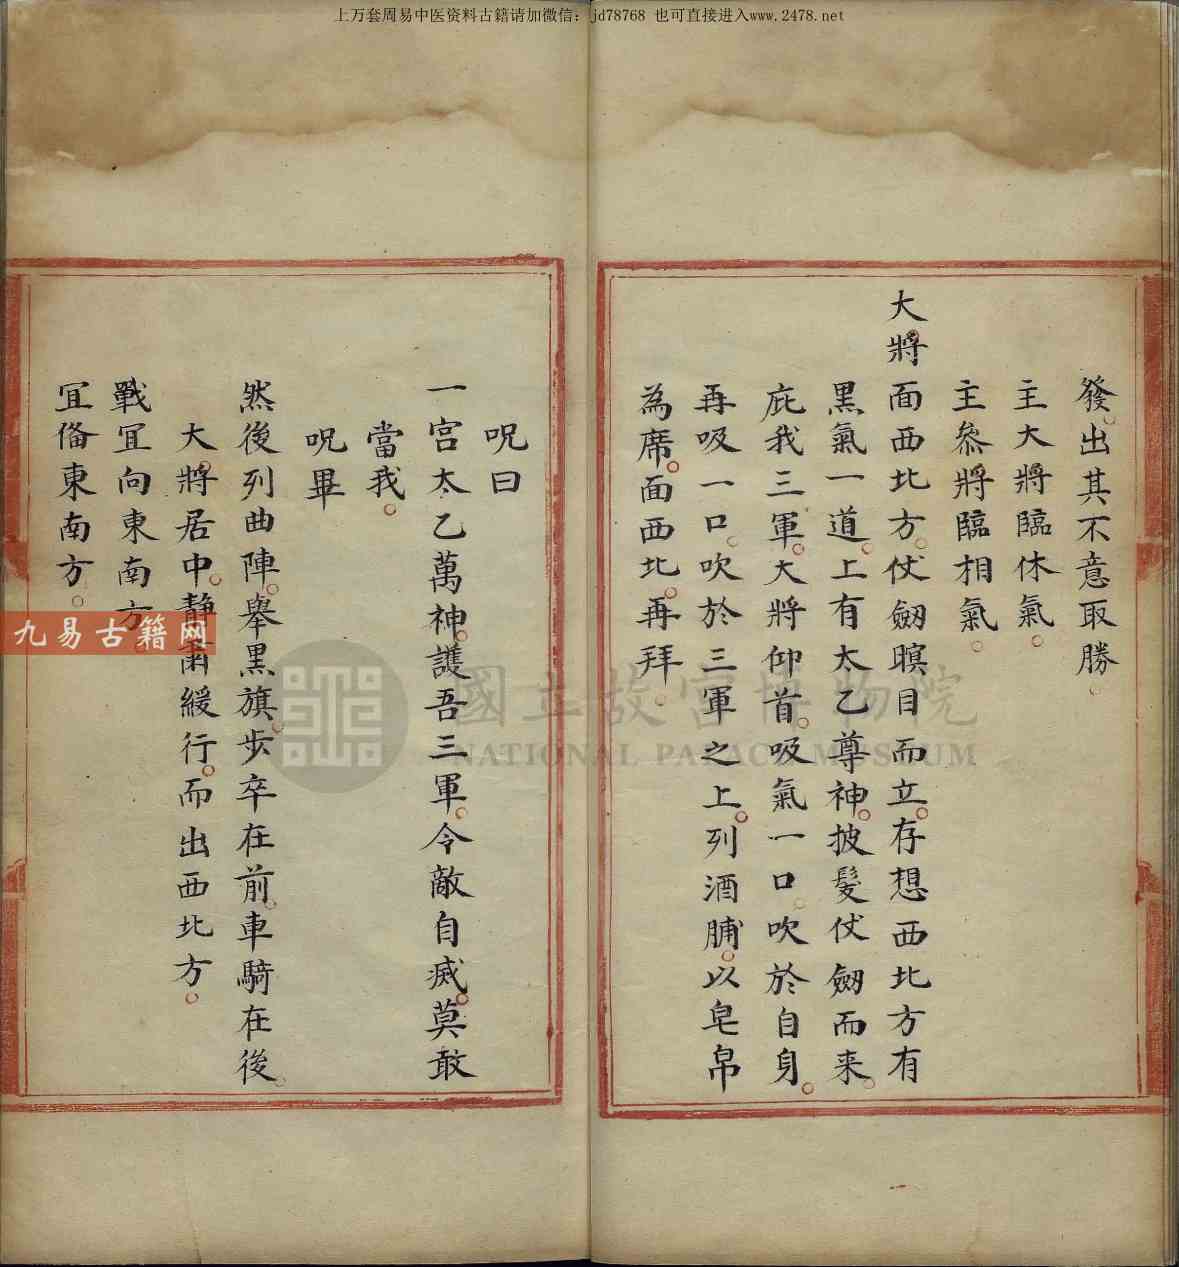 上万套周易中医资料古籍请加微信：jd78768 也可直接进入www.2478.net
發。出其不意取勝。
主大將臨休氣。
主參將臨相氣。
大將面西北方。仗劔瞑目而立。存想西北方有
黑氣一道。上有太乙尊神。披髮仗劔而来。
庇我三軍。大將仰首。吸氣一口。吹於自身。
再吸一口。吹於三軍之上。列酒脯。以皂帛
為席。面西北。再拜。
呪曰
一宫太乙萬神。護吾三軍。令敵自滅。莫敢
當我。
呪畢
然後列曲陣。舉黑旗。步卒在前。車騎在後。
大將居中。靜肅緩行。而出西北方。
戰冝向東南方。
冝俻東南方。
九易古籍网
國立故宮博物院
NATIONAL PALACE MUSEUM